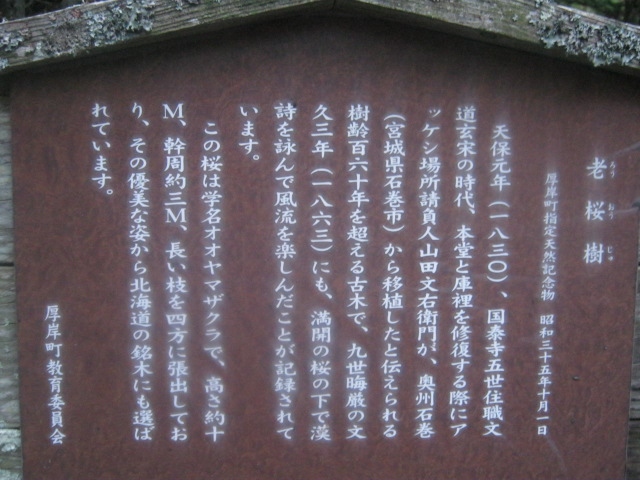 老桜樹
ろう おう じゅ
厚岸町指定天然記念物 昭和三十五年十月一日
天保元年(一八三〇)、国泰寺五世住職文
道玄宋の時代、本堂と庫裡を修復する際にア
ッケシ場所請負人山田文右衛門が、奥州石巻
(宮城県石巻市)から移植したと伝えられる
樹齢百六十年を超える古木で、九世晦巌の文
久三年(一八六三)にも、満開の桜の下で漢
詩を詠んで風流を楽しんだことが記録されて
います。
この桜は学名オオヤマザクラで、高さ約十
M、幹周約三M、長い枝を四方に張出してお
り、その優美な姿から北海道の銘木にも選ば
れています。
厚岸町教育委員会